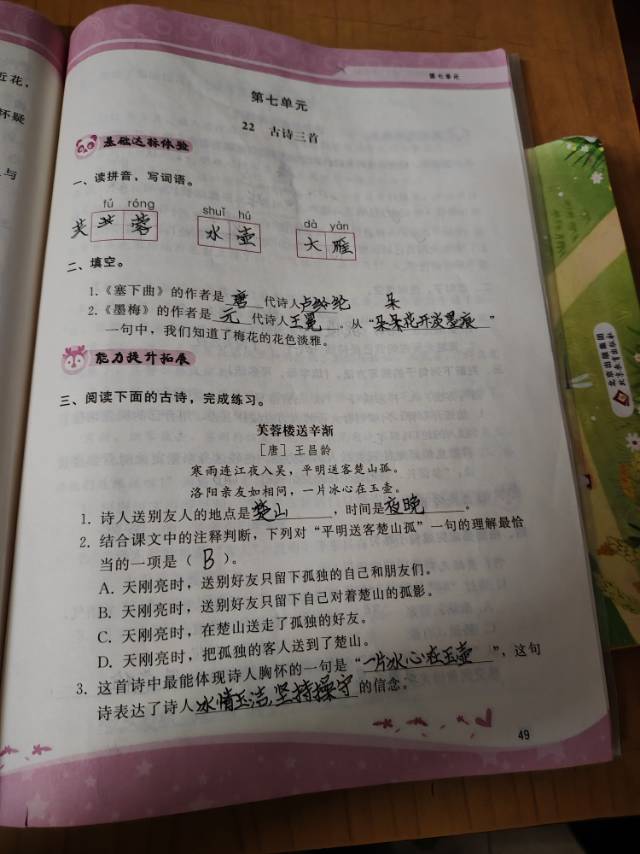 第七单元
近花，
怀疑
与
第七单元
22 古诗三首
基础达标体验
一、读拼音，写词语。
fú róng shuǐ hú dà yàn
芙 芙 蓉 水 壶 大 雁
二、填空。
1.《塞下曲》的作者是 唐 代诗人 卢纶纶 朵
2.《墨梅》的作者是 元 代诗人 王冕 。从“朵朵花开淡墨痕”
一句中，我们知道了梅花的花色淡雅。
能力提升拓展
三、阅读下面的古诗，完成练习。
芙蓉楼送辛渐
［唐］王昌龄
寒雨连江夜入吴，平明送客楚山孤。
洛阳亲友如相问，一片冰心在玉壶。
1. 诗人送别友人的地点是 楚山 ，时间是 夜晚 。
2. 结合课文中的注释判断，下列对“平明送客楚山孤”一句的理解最恰
当的一项是（ B ）。
A. 天刚亮时，送别好友只留下孤独的自己和朋友们。
B. 天刚亮时，送别好友只留下自己对着楚山的孤影。
C. 天刚亮时，在楚山送走了孤独的好友。
D. 天刚亮时，把孤独的客人送到了楚山。
3. 这首诗中最能体现诗人胸怀的一句是“一片冰心在玉壶”，这句
诗表达了诗人 冰情玉洁，坚持操守 的信念。
49
北京出版集团
北京教育出版社